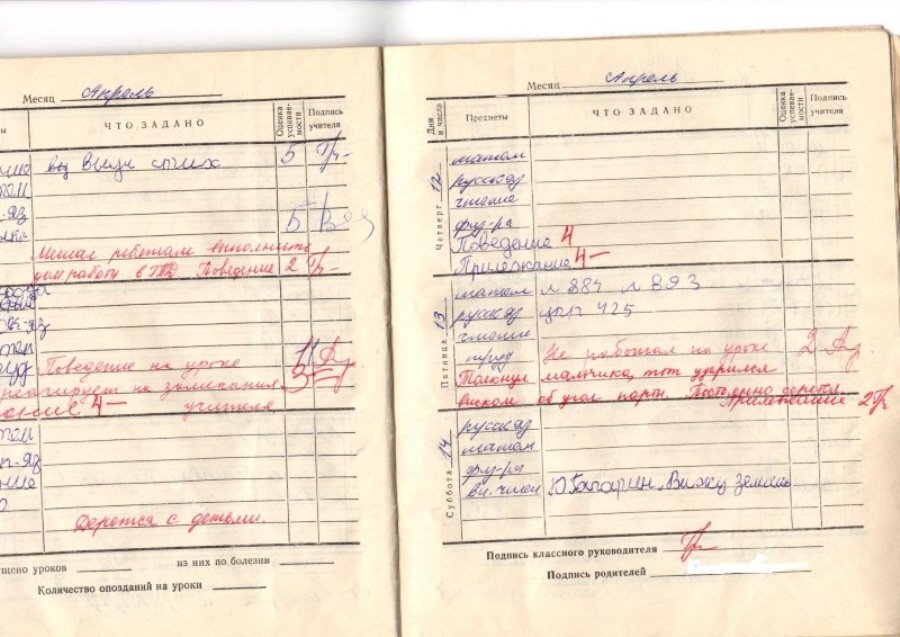 Месяц Апрель
ЧТО ЗАДАНО
Оценка успеваемости
Подпись учителя
выучи стих 5
5
Мешал ребятам выполнить
дом работу в Поведение 2
Поведение на уроке
реагирует на замечания
4 – учителя
Дерется с детьми.
уроков из них по болезни
Количество опозданий на уроки
Месяц Апрель
Дни и числа
Предметы
ЧТО ЗАДАНО
Оценка успеваемости
Подпись учителя
Четверг 12
матем
русск яз
чтение
физ-ра
Поведение 4
Прилежание 4 –
Пятница 13
матем № 887 № 893
русск яз упр 425
чтение
труд Не работал на уроке 2
Толкнул мальчика, тот ударился
виском об угол парты. Постоянно дерется.
Прилежание 2
Суббота 14
русск яз
матем
физ-ра
вн. чтен Ю Гагарин „Вижу Землю
Подпись классного руководителя
Подпись родителей